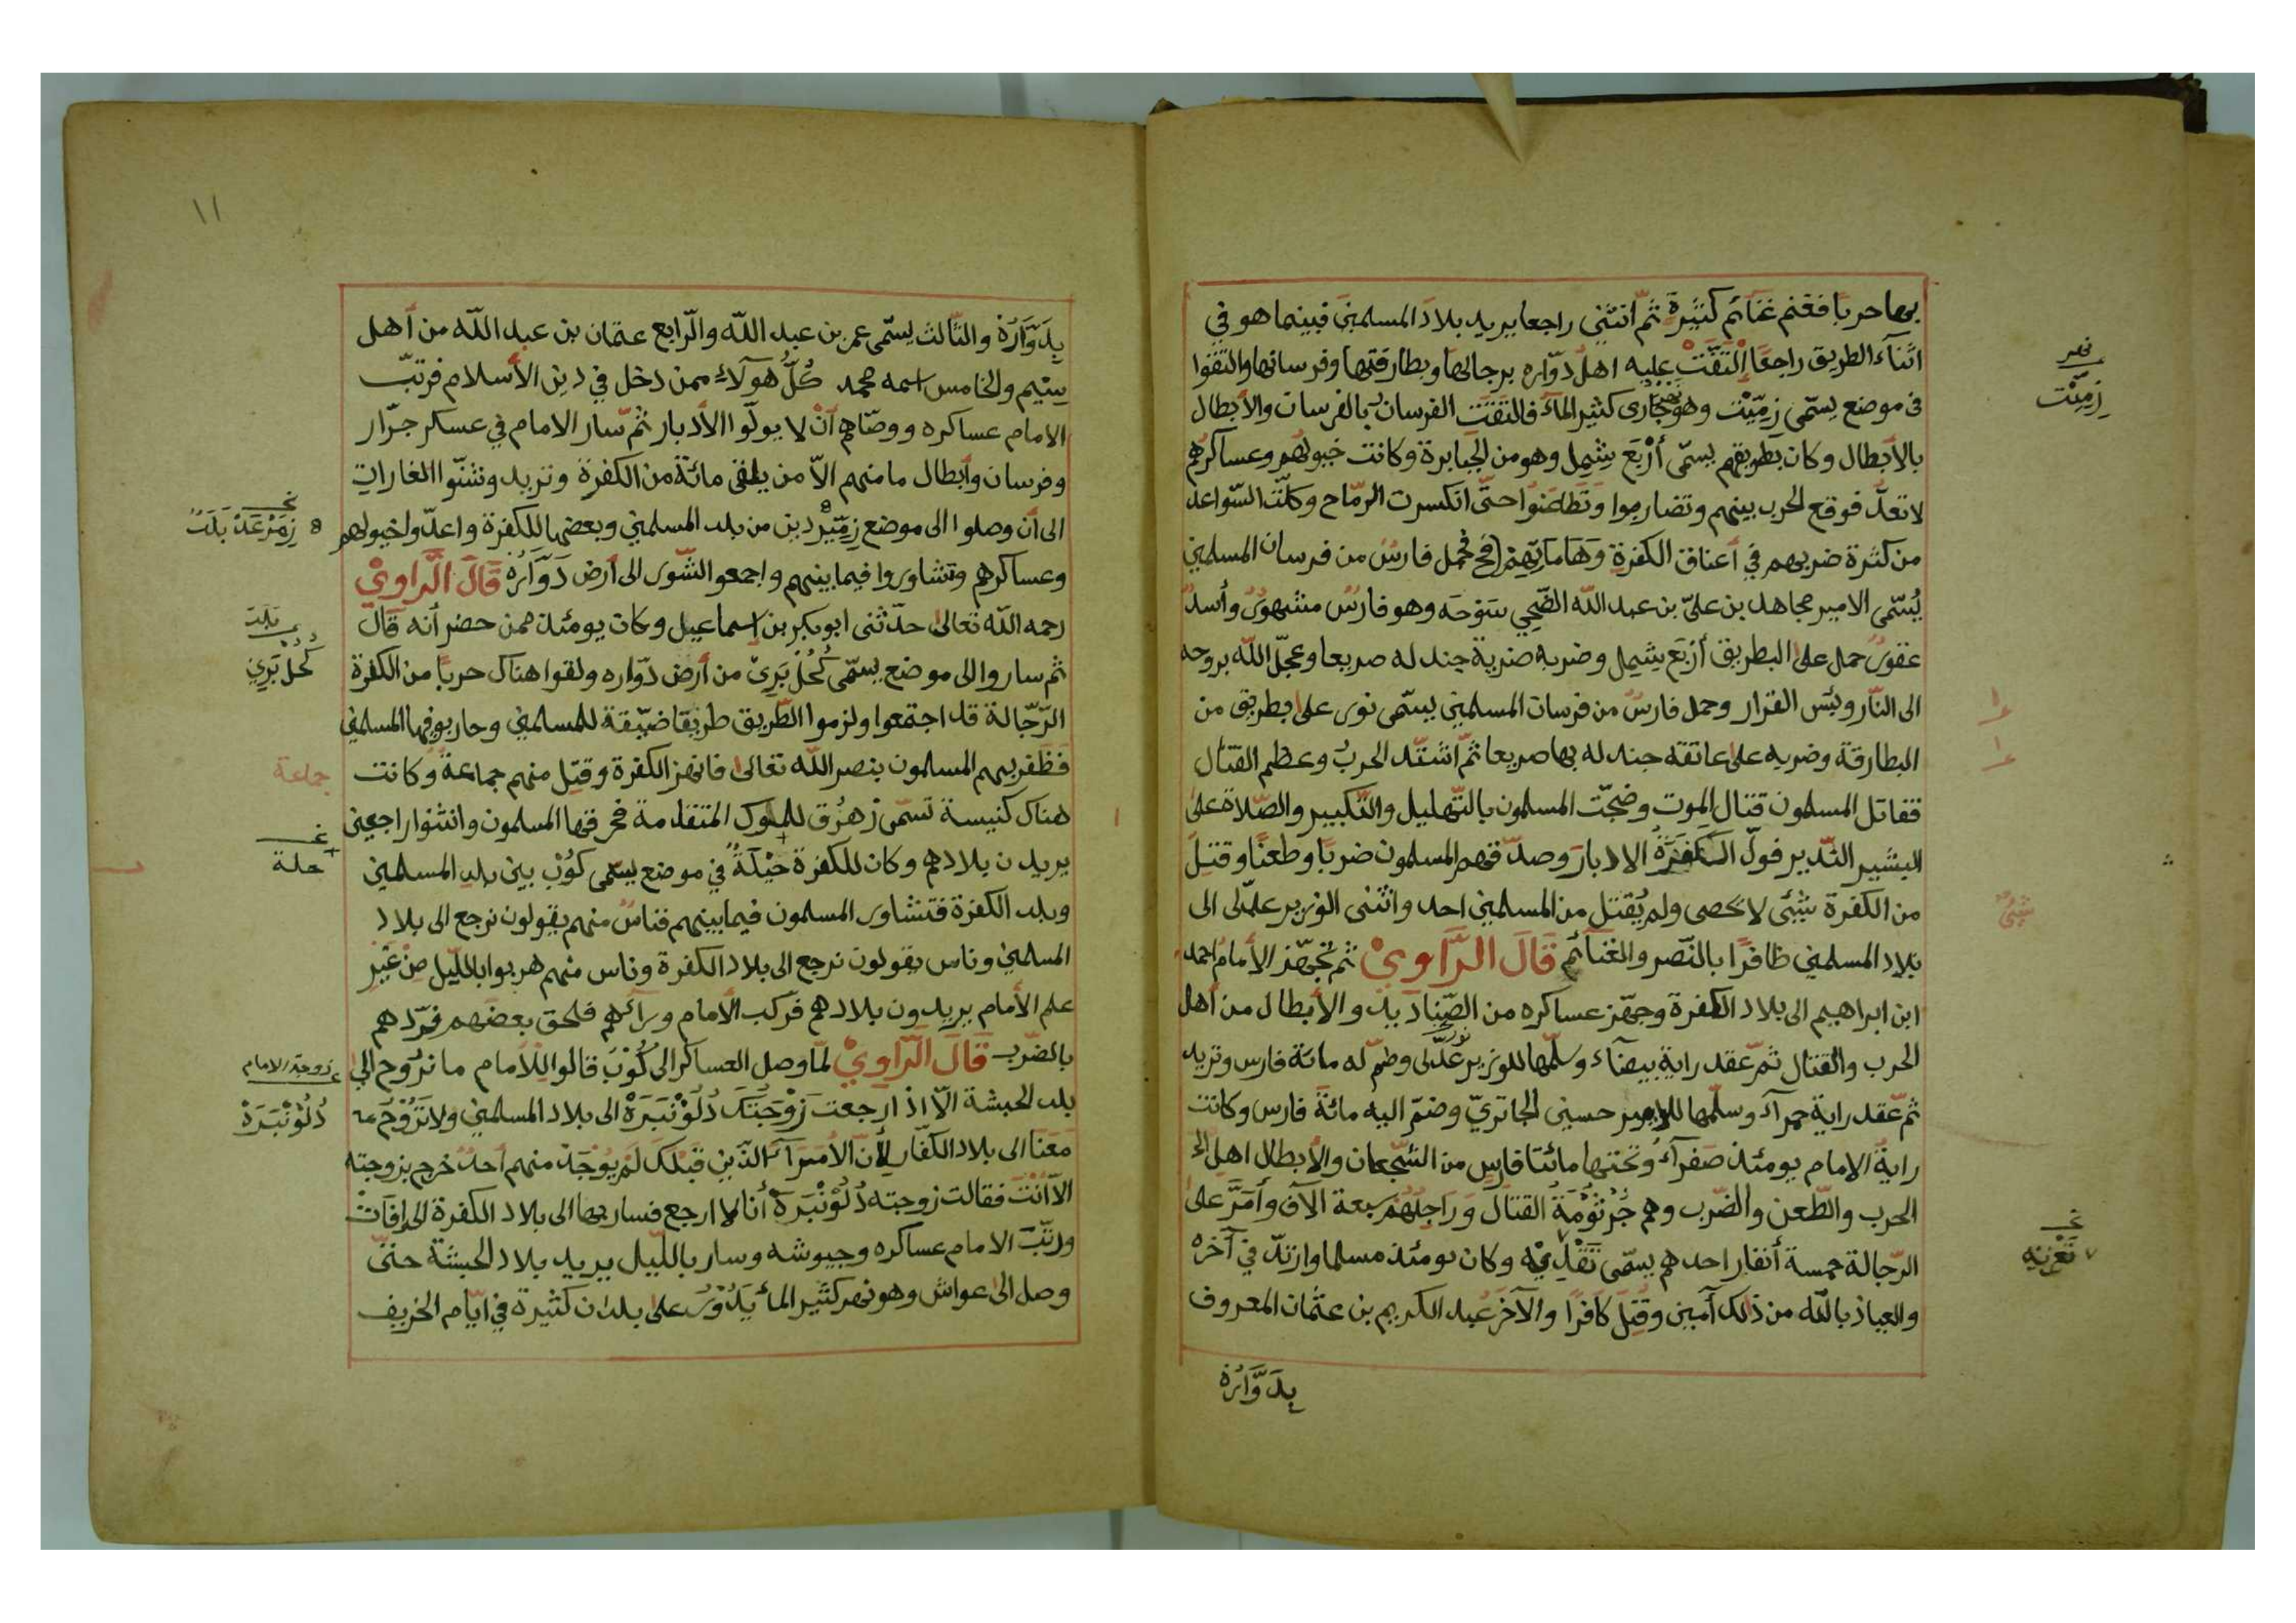 بها حربا فغنم غنائم كثيرة ثمّ انثنى راجعا يريد بلاد المسلمين فبينما هو في
اثناء الطريق راجعًا اْلتقَتْ عليه اهل دوّاره برجالها وبطارقتها وفرسانها والتقوا
فى موضع يسمّى زِمِيّت وهو جارى كثير الماء فالتقت الفرسان بالفرسان والأبطال
بالأبطال وكان بطريقهم يسمّى أزْبَع يشيمل وهو من الجبابرة وكانت خيولهم وعساكرهم
لا تعدّ فوقع الحرب بينهم وتضاربوا وَتَطَاعَنُوا حتّى انكسرت الرمّاح وكلّت السّواعد
من كثرة ضربهم في أعناق الكفرة وَهَامَاتِهِمْ فحمل فارسٌ من فرسان المسلمين
يُسّمى الامير مجاهد بن علىّ بن عبد الله الضّحِي سَوْحَه وهو فارسٌ مشهورٌ وأسدٌ
عقورٌ حمل على البطريق أزبَع يشيمل وضربه ضربة جندله صريعا وعجّل الله بروحه
الى النّار وبئس القرار وحمل فارسٌ من فرسان المسلمين يسمّى نور على بطريق من
البطارقة وضربه على عاتقه جندله بها صريعا ثمّ اشتدّ الحربُ وعظم القتال
فقاتل المسلمون قتال الموت وضجّت المسلمون بالتّهليل والتّكبير والصّلاة على
البشير النّدير فولّ الكَفَرَةُ الادبارَ وصدّ قهم المسلمون ضربًا وطعنًا وقتل
من الكفرة شيئى لا تحصى ولم يُقتل من المسلمين احد وانثنى الوزير عدّلى الى
بلاد المسلمين ظافرًا بالنّصر والغنآئم قَالَ الرَّاوِيْ ثم تجهّز الأمام احمد
ابن ابراهيم الى بلاد الكفرة وجهّز عساكره من الصِّنادَيد والأبطال من أهل
الحرب والقتال ثمّ عقد راية بيضآء وسلّمها للوزير نور عدّلى وضمّ له مائة فارس وتزيد
ثمّ عقد راية حمرآء وسلّمها للامير حسين الجاتريّ وضمّ اليه مائة فارس وكانت
رايةُ الامام يومئذ صَفرآءُ وتحتها مائتا فارس من الشّجعان والأبطال اهل
الحرب والطّعن والضّرب وهم جُرْثُوْمَةُ القتال وَرَاجِلُهُمْ سبعة الآف وأمَرَّ على
الرّجالة خمسة أنفار احدهم يسمّى تَقْلِيْه وكان يومئذ مسلما وارتدّ في آخره
والعياذ بالله من ذلك آمين وقُتِلَ كافرًا والآخرَ عبد الكريم بن عثمان المعروف
بِدَوَّارَهْ
نهر
زِمِيّت
شيئ
نخ
٧ تغزيه
١١
بِدَوَّارَهْ والثّالث يسمّى عمر بن عبد الله والرّابع عثمان بن عبد الله من أهل
سِيْم والخامس اسمه محمد كُلُّ هولآء ممن دخل في دين الأسلام فرتبّ
الامام عساكره ووصّاهم أنْ لا يولّوا الأدبار ثمّ سار الامام في عسكر جرّار
وفرسان وأبطال ما منهم الاّ من يلقى مائة من الكفرة وتزيد وشنّوا الغارات
الى أن وصلوا الى موضع زِمِيّرْ دين من بلد المسلمين وبعضها للكفرة واعدّوا خيولهم
وعساكرهم وتشاوروا فيما بينهم واجمعو الشّور الى أرض دَوَّارُه قَالَ الَّراوِيْ
رحمه الله تعالى حدّثنى ابو بكر بن اسماعيل وكان يومئذ ممن حضر أنه قال
ثم ساروا الى موضع يسمّى كُحُلْ بَرِيْ من أرض دوّاره ولقوا هناك حربًا من الكفرة
الرّجالة قد اجتمعوا ولزموا الطّريق طريقا ضيّقة للمسلمين وحاربو فيها المسلمين
فظفر بهم المسلمون بنصر الله تعالى فانهز الكفرة وقتل منهم جماعة وكانت
هناك كنيسة تسمّى زهرُق للملوك المتقدّمة فحرقها المسلمون وانثنوا راجعين
يريدن بلادهم وكان للكفرة حَيْلَةٌ في موضع يسّمى كُوْبْ بين بلدِ المسلمين
وبلد الكفرة فتشاور المسلمون فيما بينهم فناسٌ منهم يقولون نرجع الى بلاد
المسلمين وناس يقولون نرجع الى بلاد الكفرة وناس منهم هربوا بالليل مِنْ غَيْرِ
علم الأمام يريدون بلادهم فركب الأمام ورآئهم فلحق بعضَهم فردّهم
بالضّرب قَالَ الَّراوِيْ لمّا وصل العساكر الى كُوْبْ قالوا للأمام ما نرُوح الى
بلد الحبشة الاّ اذا رجعت زَوْجَتَك دَلْوَنْبَرَهْ الى بلاد المسلمين ولا تَرُوْحُ مـ
مَعَنَا الى بلاد الكفّار لأنّ الأمَرآءَ الذّين قَبْلَكَ لَمْ يُوْجَدْ منهم أحدٌ خرج بزوجته
الاّ انْتَ فقالت زوجته دَلْوَنْبَرَهْ أنا لا ارجع فسار بها الى بلاد الكفرة
ورتّبَ الامام عساكره وجيوشه وسار باللّيل يريد بلاد الحبشة حتىّ
وصل الى عواش وهو نهر كثير المآ يَدُوْرُ على بلدان كثيرة في ايّام الخريف
نخ
زِمَرْعَدْ بَلَتْ
بلد
كُحُلْ بَرِي
جماعة
نخ
حلة
زوجة الامام
دَلْوَنْبَرَهْ